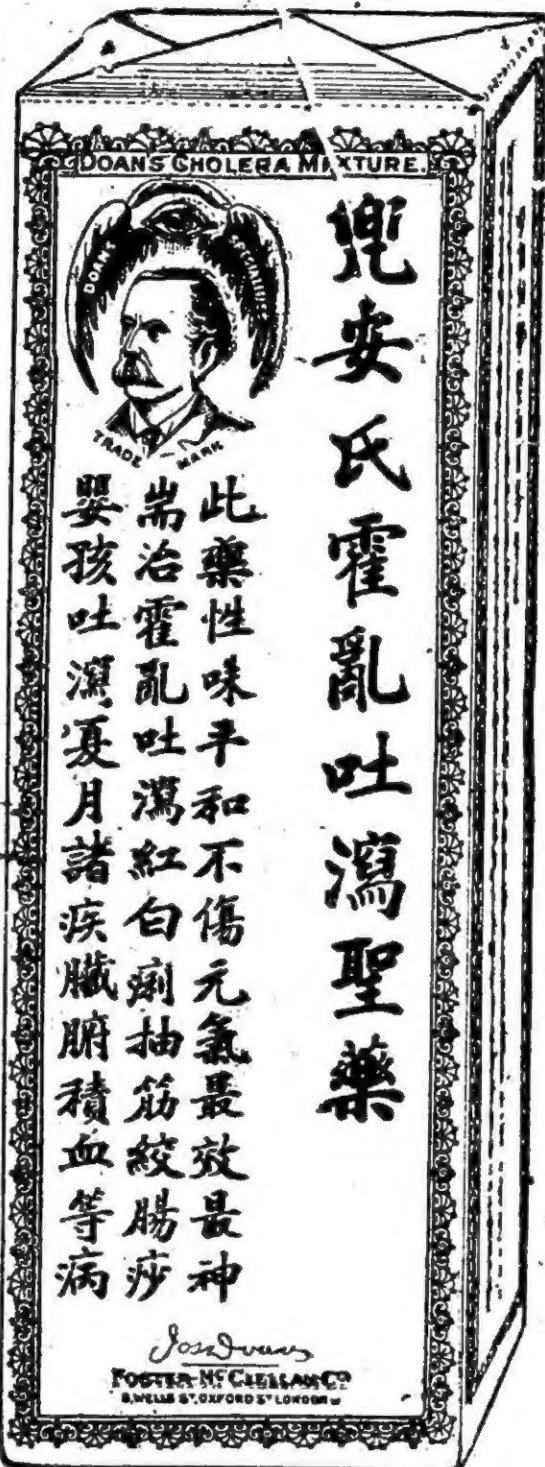 DOAN'S CHOLERA MIXTURE.
DOAN'S SPECIALITIES
TRADE MARK
兜安氏霍亂吐瀉聖藥
此藥性味平和不傷元氣最效最神
耑治霍亂吐瀉紅白痢抽筋絞腸痧
嬰孩吐瀉夏月諸疾臟腑積血等病
FOSTER-McCLELLAN CO
8, WELLS ST, OXFORD ST LONDON W